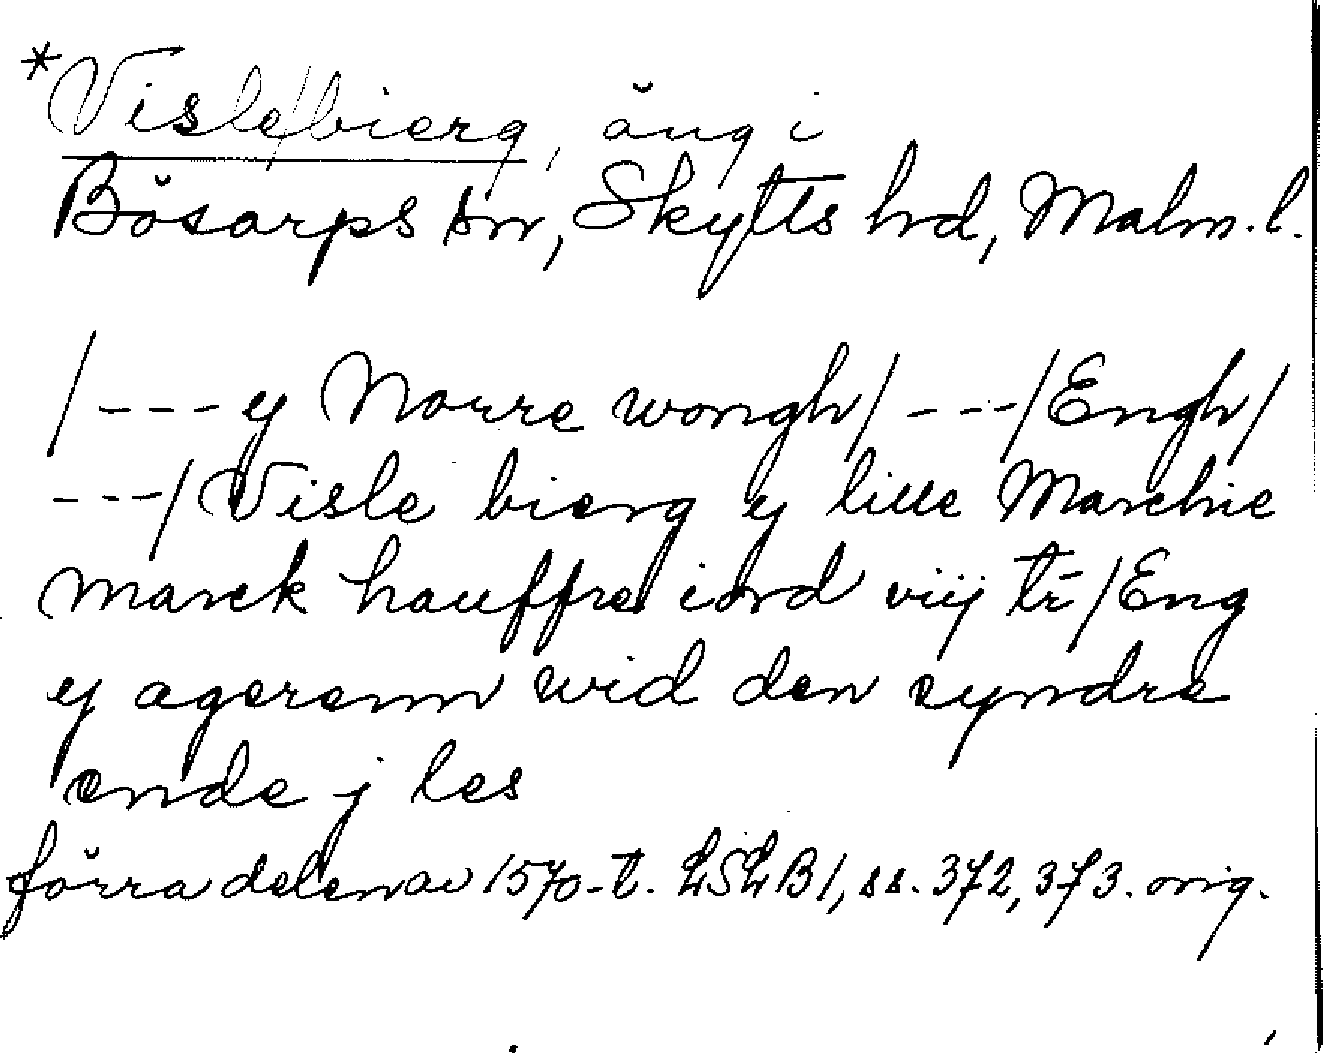 *Visle/bierg, äng i
Bösarps sn, Skytts hd, Malm. l.
/---y Norre wongh/ ---/Engh/
---/Visle bierg y lille Marchie
marck hauffre iord viij tr̄/Eng
y agerenn wid den syndre
ende j les
förra delen av 1570-t. LSLB1, ss. 372, 373. orig.